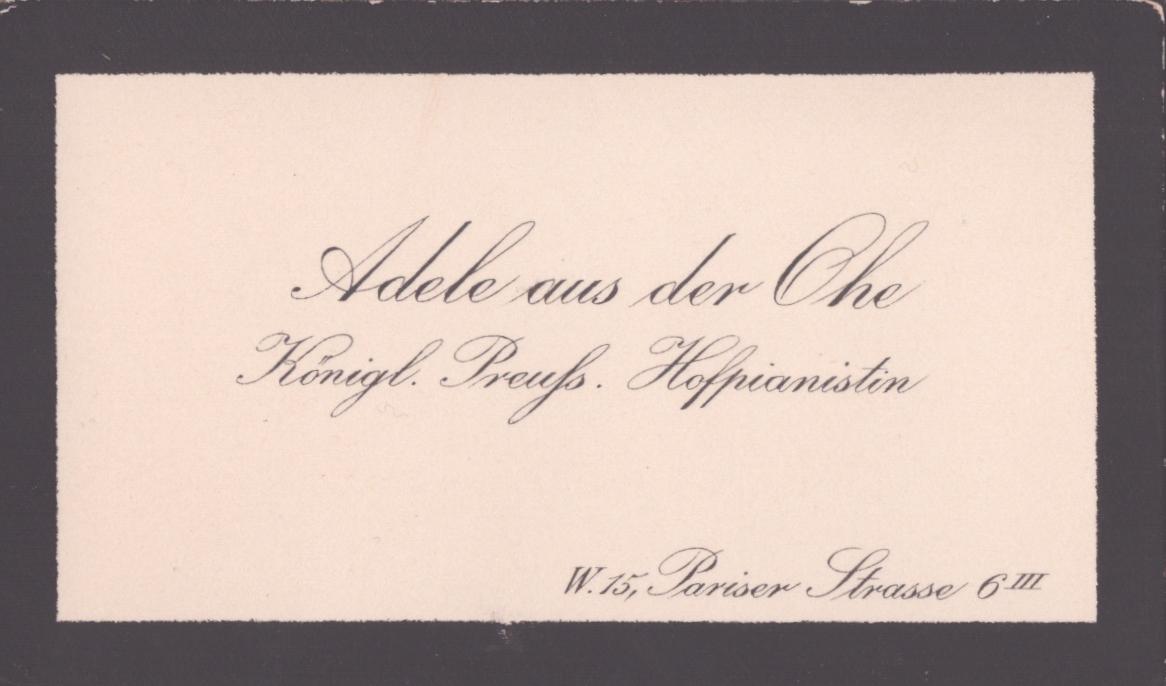 Adele aus der Ohe
Königl. Preuſs. Hofpianistin
W. 15, Pariser Strasse 6 III